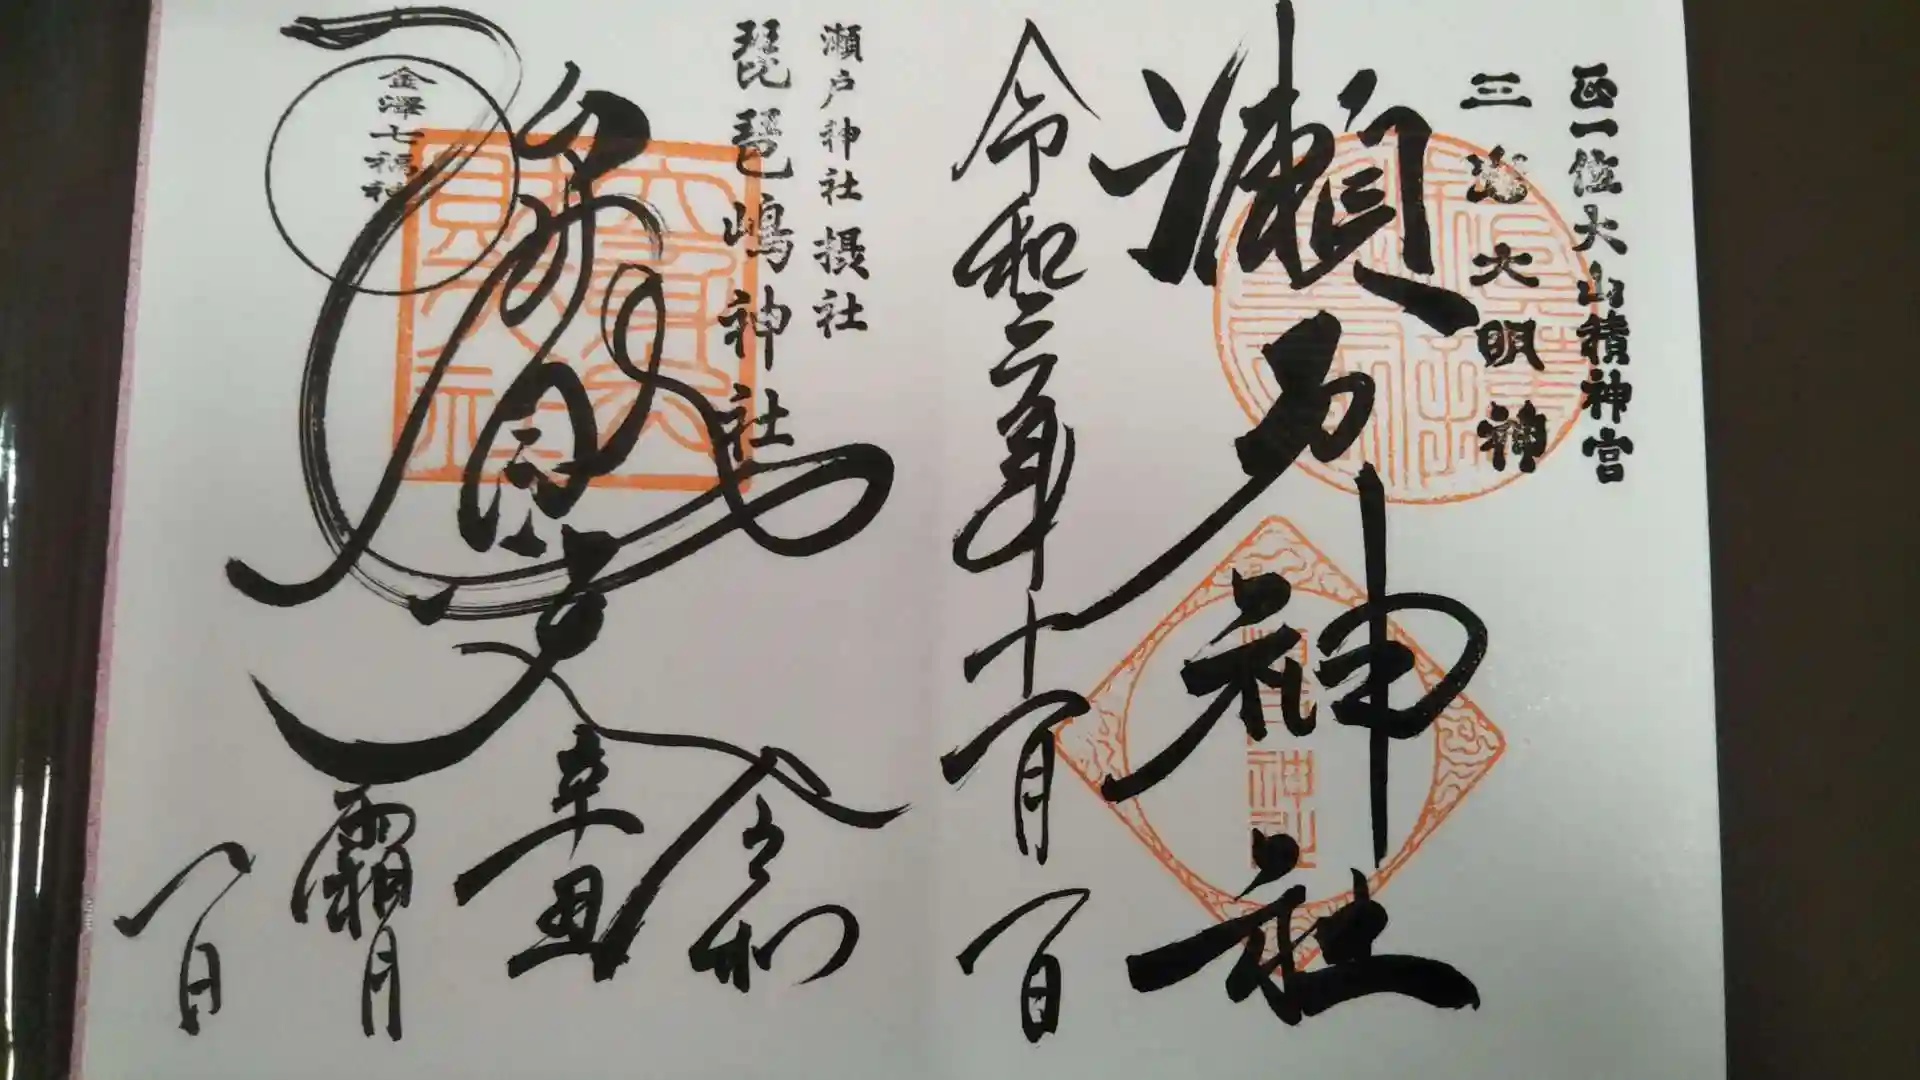 正一位大山積神宮
三嶌大明神
瀬戸神社
令和三年十一月一日
瀬戸神社摂社
琵琶嶋神社
金澤七福神
弁財天
令和
辛丑
霜月
一日